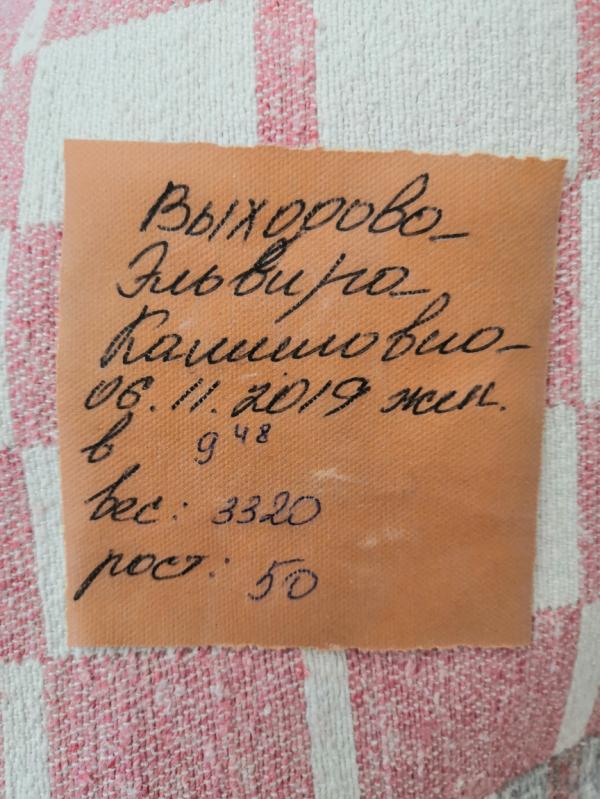 Эльвира
Камиловна
06.11.2019 жен.
в 9 48
вес: 3320
рост: 50